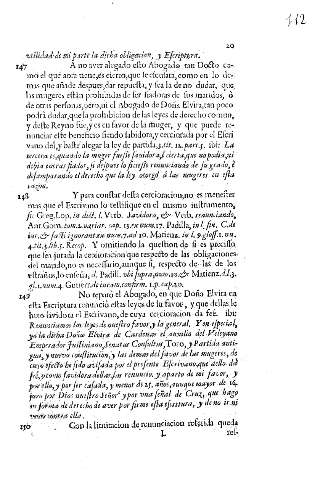 112
20
utilidad de mi parte la dicha obligacion, y Escriptura.
147 A no aver alegado esto Abogado tan Docto co-
mo el que aora tiene, es cierto, que se escusàra, como en lo de-
mas que añade despues, dar repuesta, y sea la de no dudar, que
las mugeres estàn prohividas de ser fiadoras de sus maridos, ò
de otras personas, pero, ni el Abogado de Doña Elvira, tan poco
podrà dudar, que la prohibicion de las leyes de derecho comun,
y deste Reyno sue, y es en favor de la muger, y que puede re-
nunciar este beneficio siendo sabidora, y cerciorada por el Escri
vano del, y baste alegar la ley de partida, 3. tit. 12. part. 5. ibi: La
tercera es, quando la muger fuesse sabidora, è cierta, que no podia, ni
devia entrar fiador, si despues lo fiziesse renunciando de su grado, è
desamparando el derecho que la ley otorgò à las mugeres en esta
raçon.
148 Y para constar desta cercioracion, no es menester
mas que el Escrivano lo testifique en el mismo instrumento,
sic Greg. Lop. in dict. l. Verb. Savidora, & Verb. renunciando,
Ant. Gom. tom. 2. variar. cap. 13. ex num. 17. Padilla, in l. fin. C. de
iur. & facti ignorantia num. 7. ad 10. Matienz. in l. 9. gloss. 1. nu.
4. tit. 3. lib. 5. Recop. Y omitiendo la question de si es preciso
que sea jurada la cercioracion que respecto de las obligaciones
del mando, no es necessario, aunque si, respecto de las de los
estraños, lo enseña, d. Padill. ubi supra, num. 10. & Matienz. d. l. 3.
gl. 1. num. 4. Gutier. de iuram. confirm. 1. p. cap. 20.
149 No reparò el Abogado, en que Doña Elvira en
esta Escriptura renunciò estas leyes de su favor, y que dellas se
hizo savidora el Escrivano, de cuya cercioracion da feè. ibi:
Renunciamos las leyes de nuestro favor, y la general. Y en especial,
yo la dicha Doña Elvira de Cardenas el auxilio del Veleyano
Emperador Justiniano, Senatus Consultus, Toro, y Partida anti-
gua, y nueva constitucion, y las demas del favor de las mugeres, de
cuyo efecto he sido avisada por el presente Escrivano, que dello dà
feè, y como savidora dellas, las renuncio, y aparto de mi favor, y
por ello, y por ser casada, y menor de 25. años, aunque mayor de 16,
juro por Dios nuestro Señor y por una señal de Cruz, que hago
en forma de derecho de aver por firme esta escritura, y de no ir ni
venir contra ella.
150 Con la limitacion de renunciacion referida queda
L res-